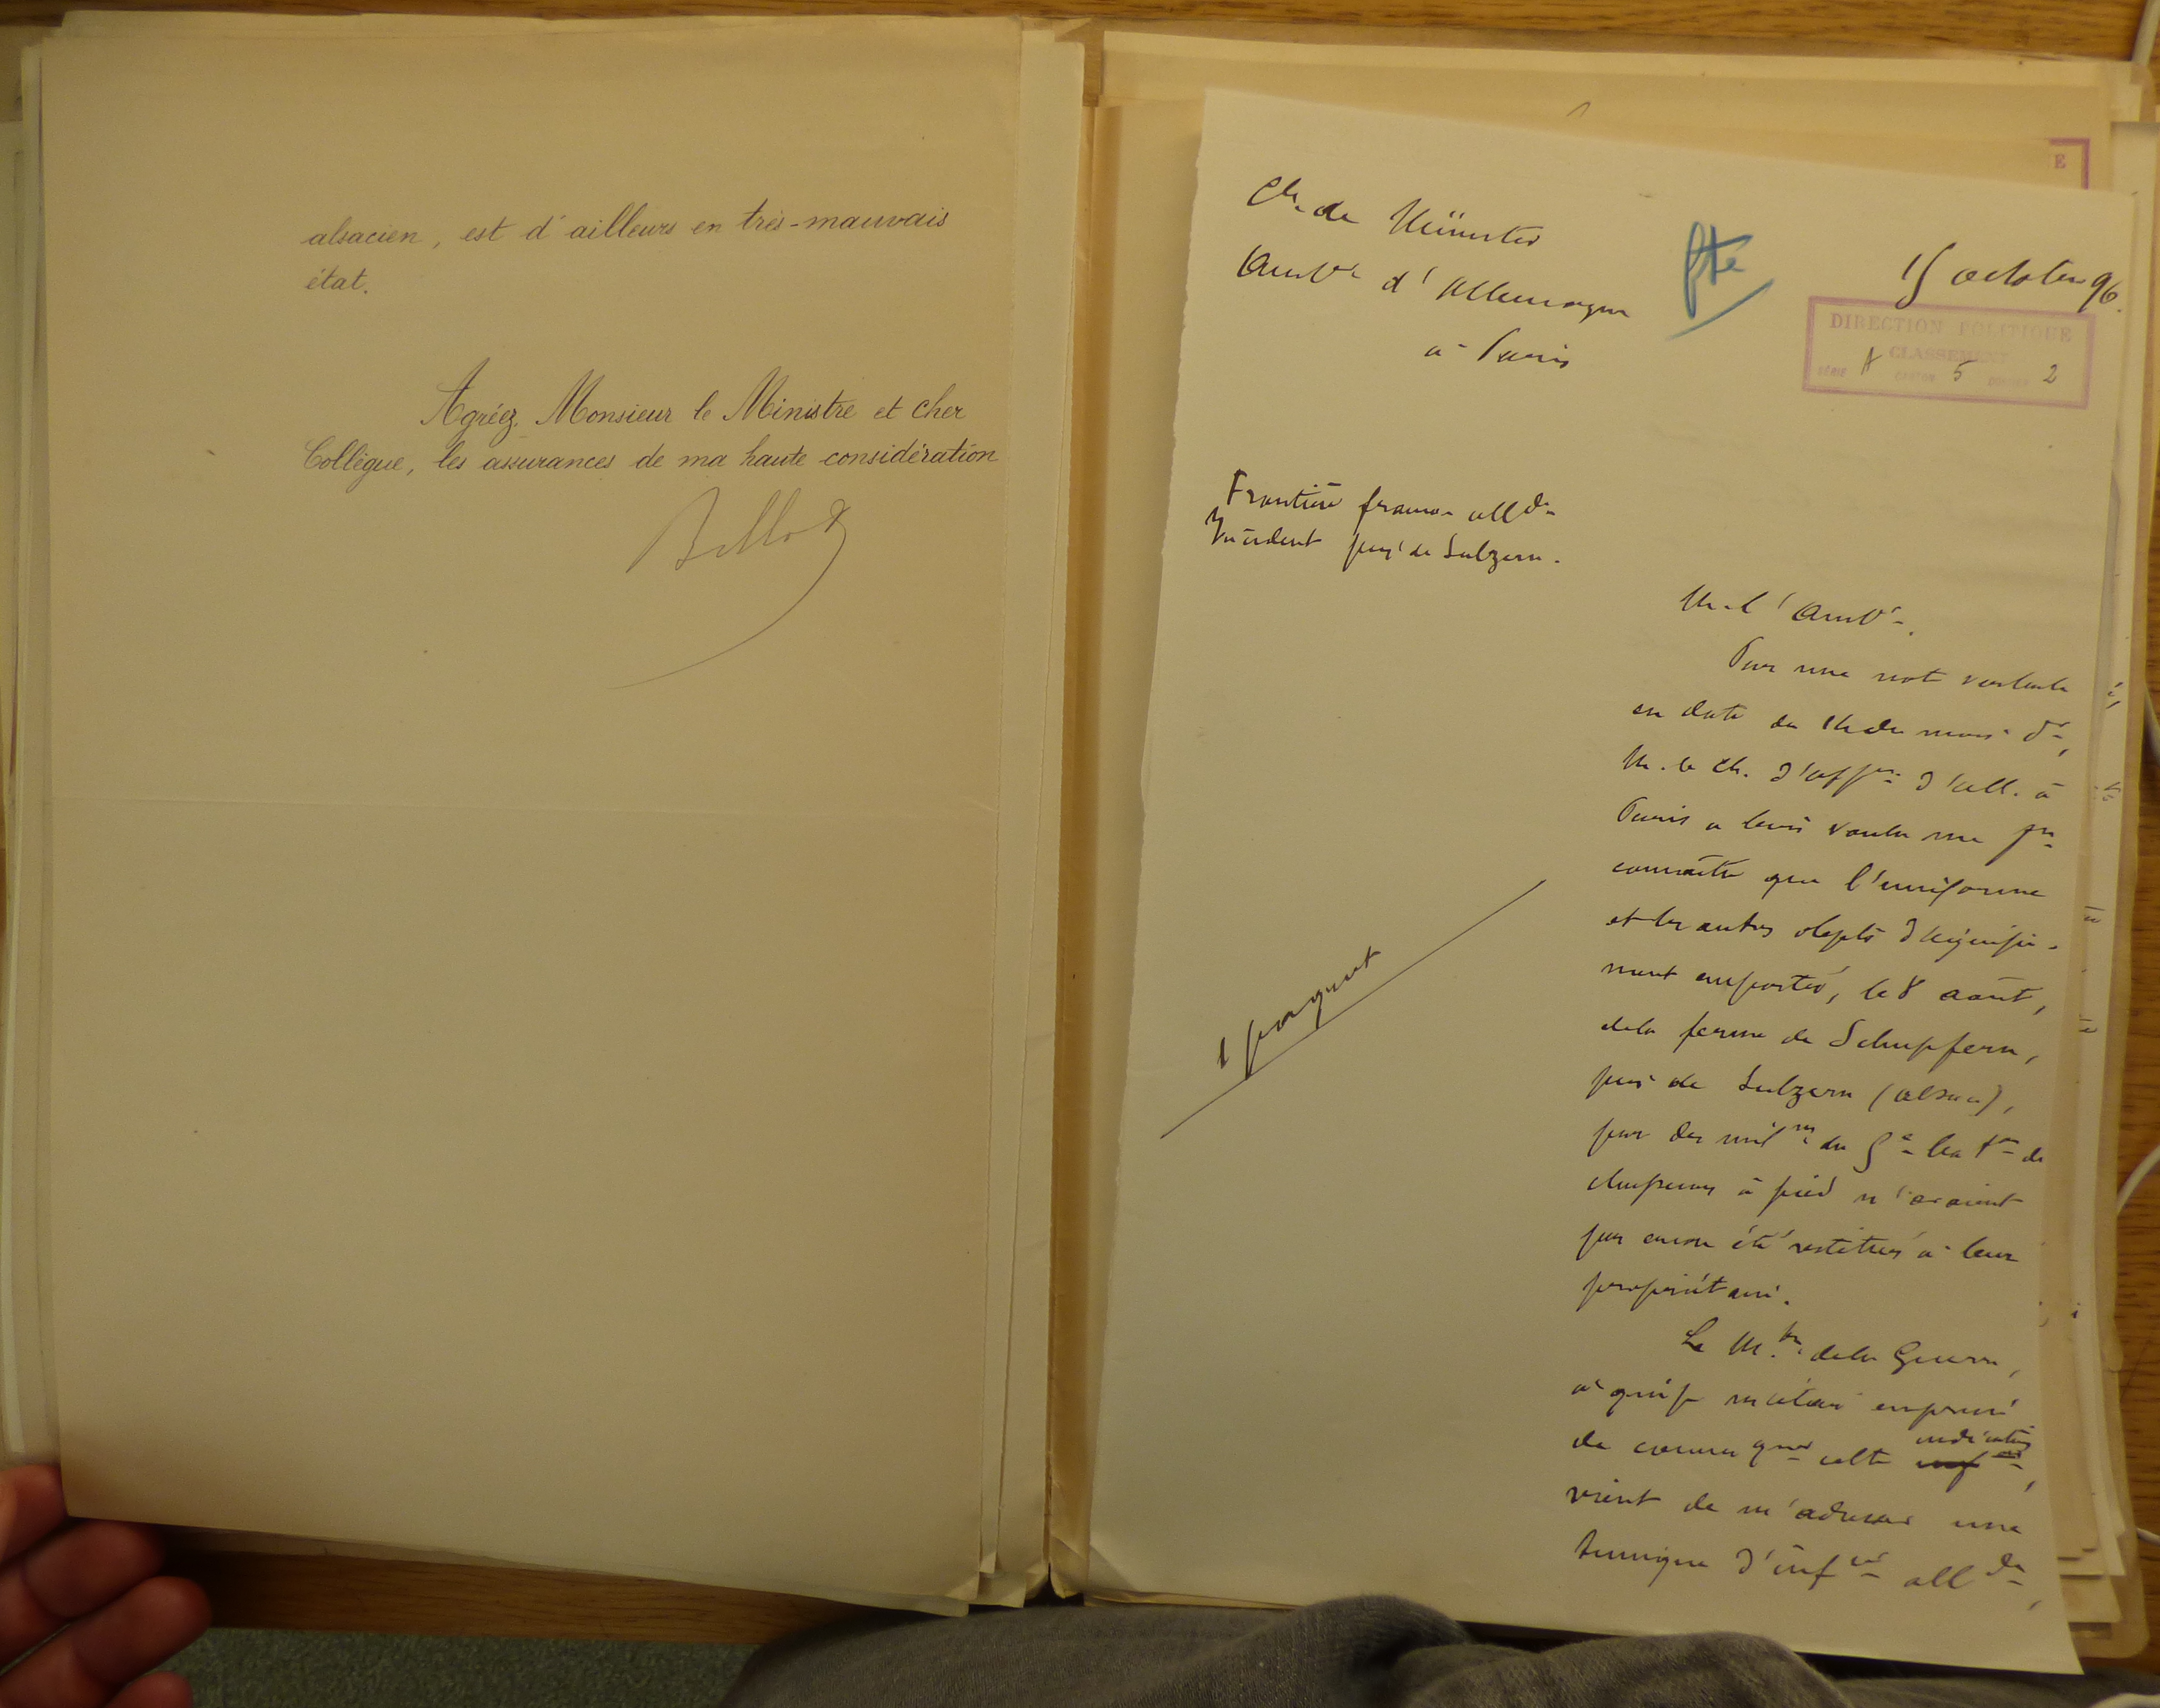 alsacien, est d'ailleurs en très-mauvais
état.
Agréez, Monsieur le Ministre et cher
Collègue, les assurances de ma haute considération
Billot
Cte de Münster
Ambr d'Allemagne
à Paris
15 octobre 96.
DIRECTION POLITIQUE
CLASSEMENT
SÉRIE A CARTON 5 DOSSIER 2
E
Frontière franco-allde
Incident près de Sulzern.
M. l'Ambr.
Par une note verbale
en date du 14 du mois dr,
M. le Ch. d'affres d'All. à
Paris a bien voulu me fre
connaître que l'uniforme
et les autres objets d'équipe-
ment emportés, le 8 août,
de la ferme de Schupfern,
près de Sulzern (Alsace),
par des milres du 5e baton de
chasseurs à pied n'avaient
pas encore été restitués à leur
propriétaire.
1 paquet
Le Mtre de la Guerre,
à qui je m'étais empressé
de communquer cette indication
vient de m'adresser une
tunique d'infie allde,